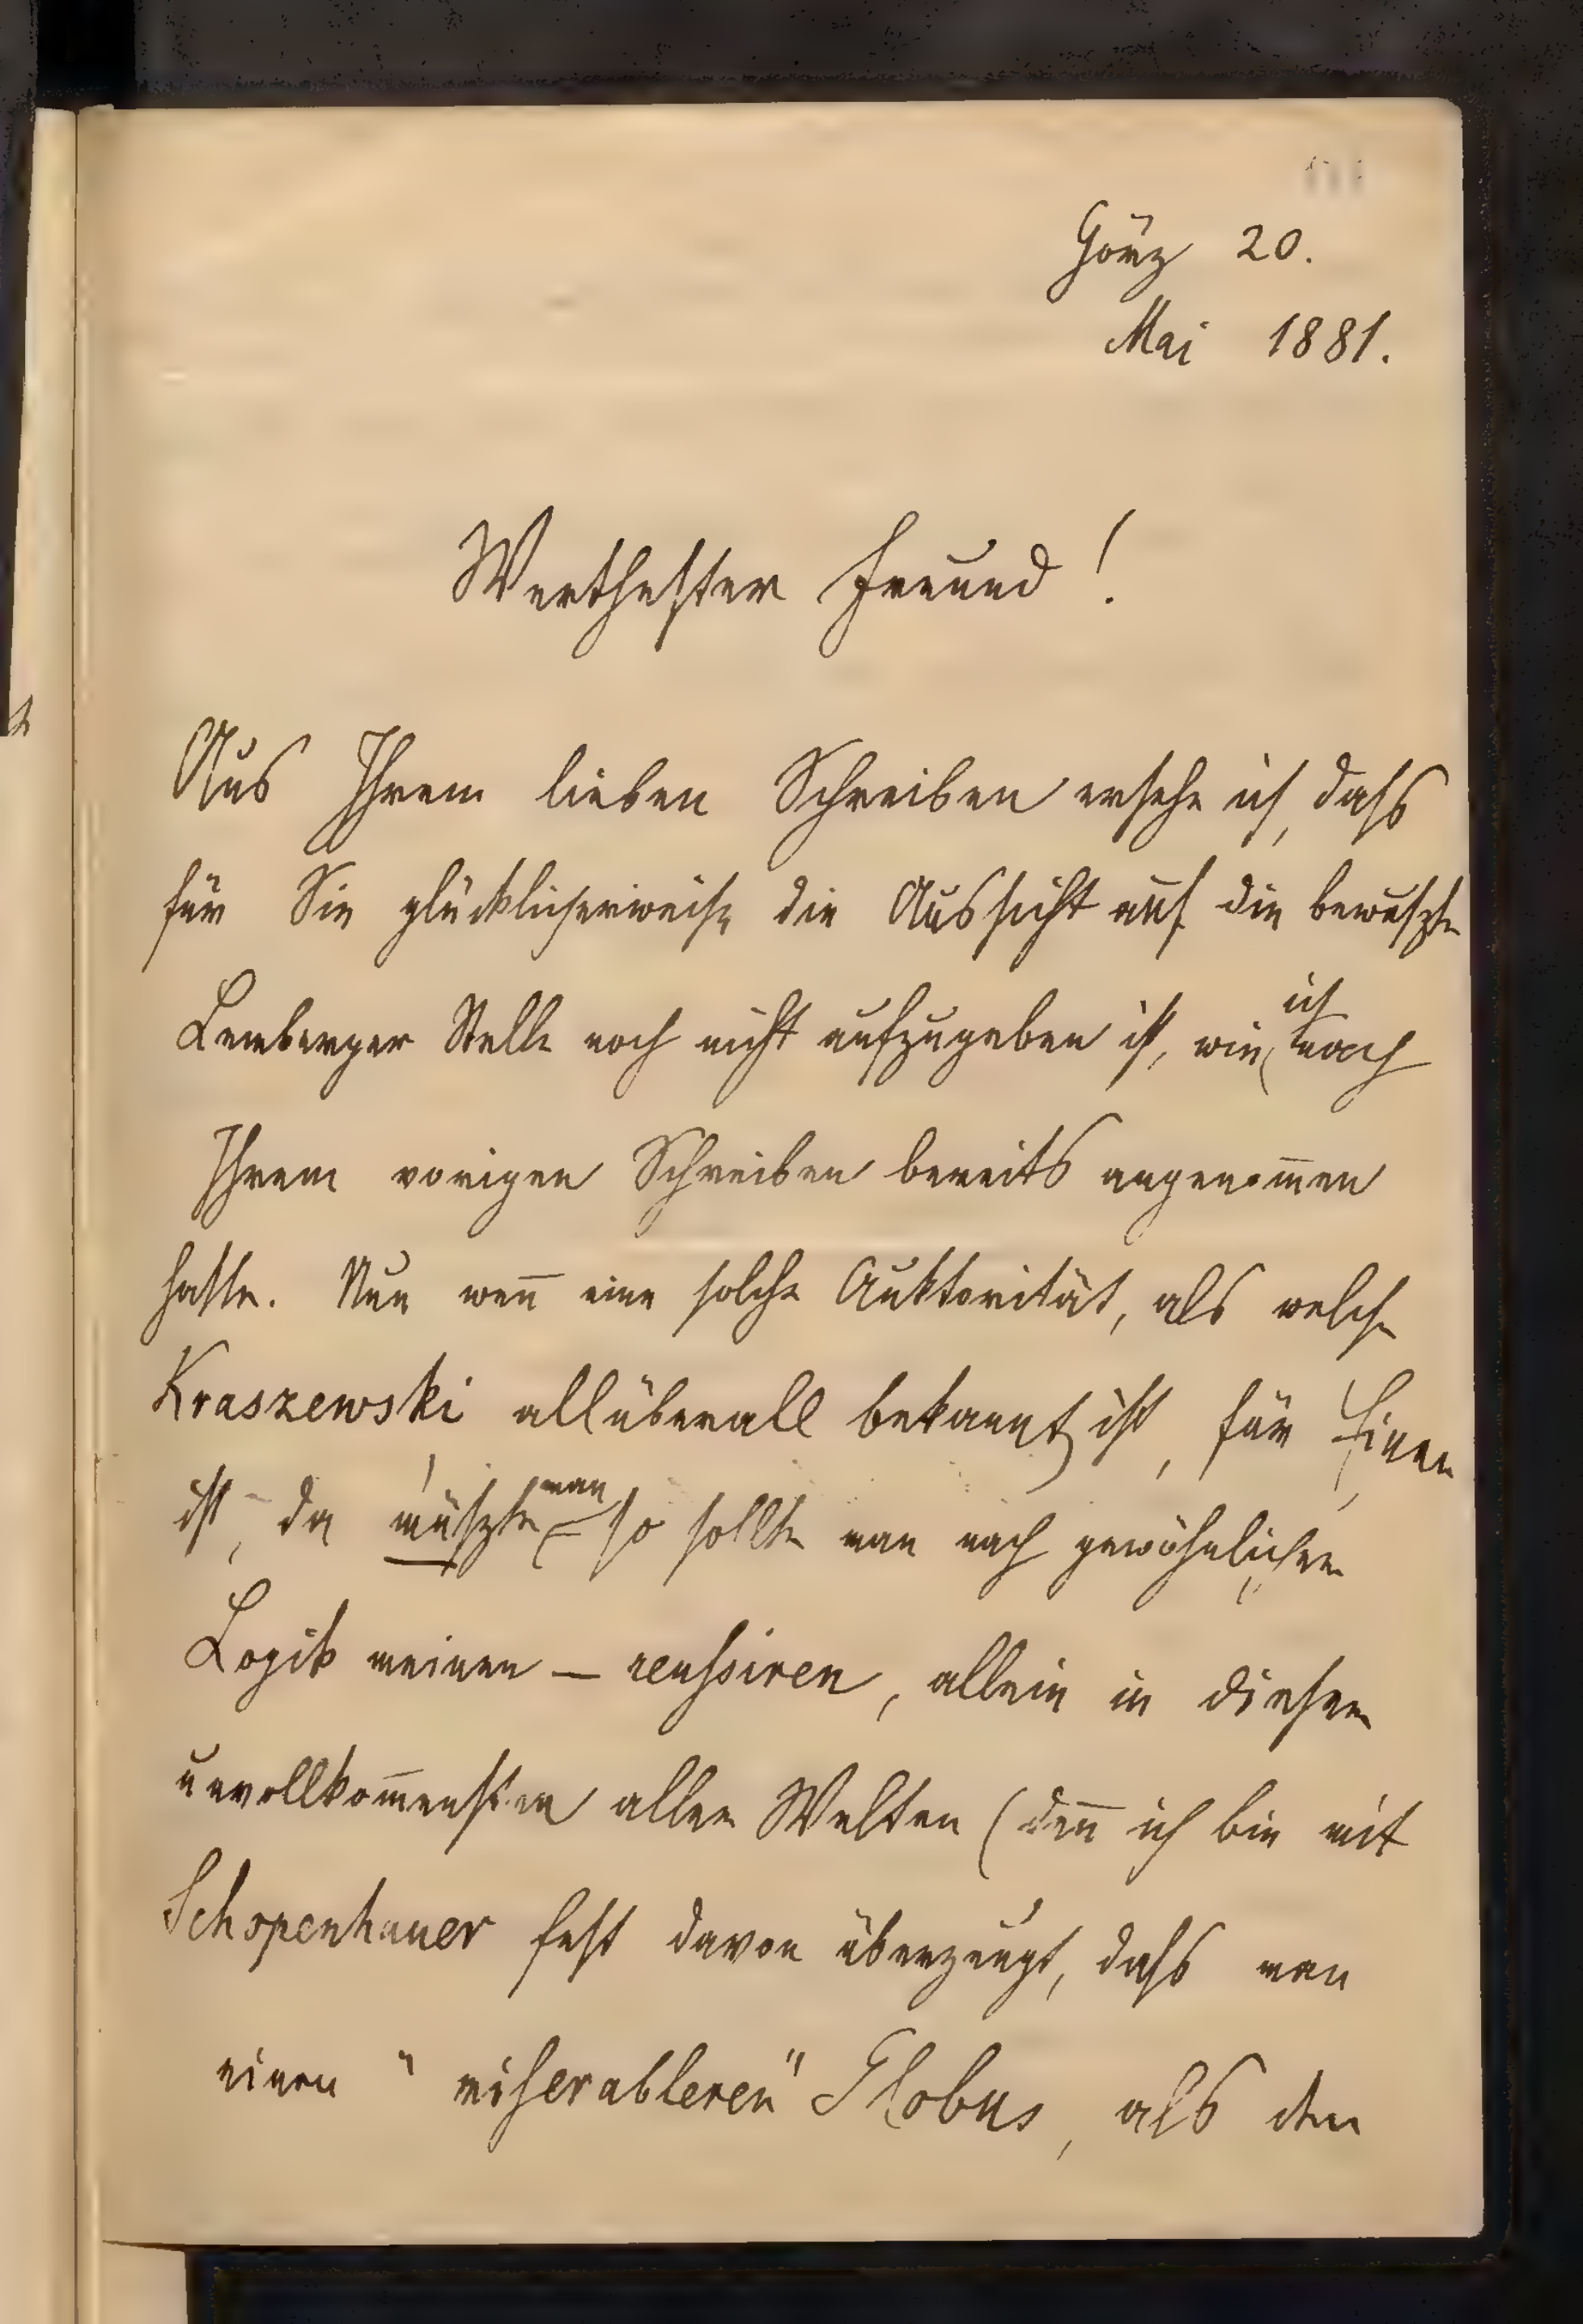 Görz 20.
Mai 1881.
Werthester Freund!
Aus Ihrem lieben Schreiben ersehe ich, dass
für Sie glücklicherweise die Aussicht auf die bewuszte
Lemberger Stelle noch nicht aufzugeben ist, wie ich nach
Ihrem vorigen Schreiben bereits angenom̅en
hatte. Nun wen̅ eine solche Auktorität, als welche
Kraszewski allüberall bekannt ist, für Einen
ist, da müszte man – so sollte man nach gewöhnlicher
Logik meinen – reussiren, allein in dieser
unvollkom̅ensten aller Welten (den̅ ich bin mit
Schopenhauer fest davon überzeugt, dass man
einen "miserableren" Globus, als den